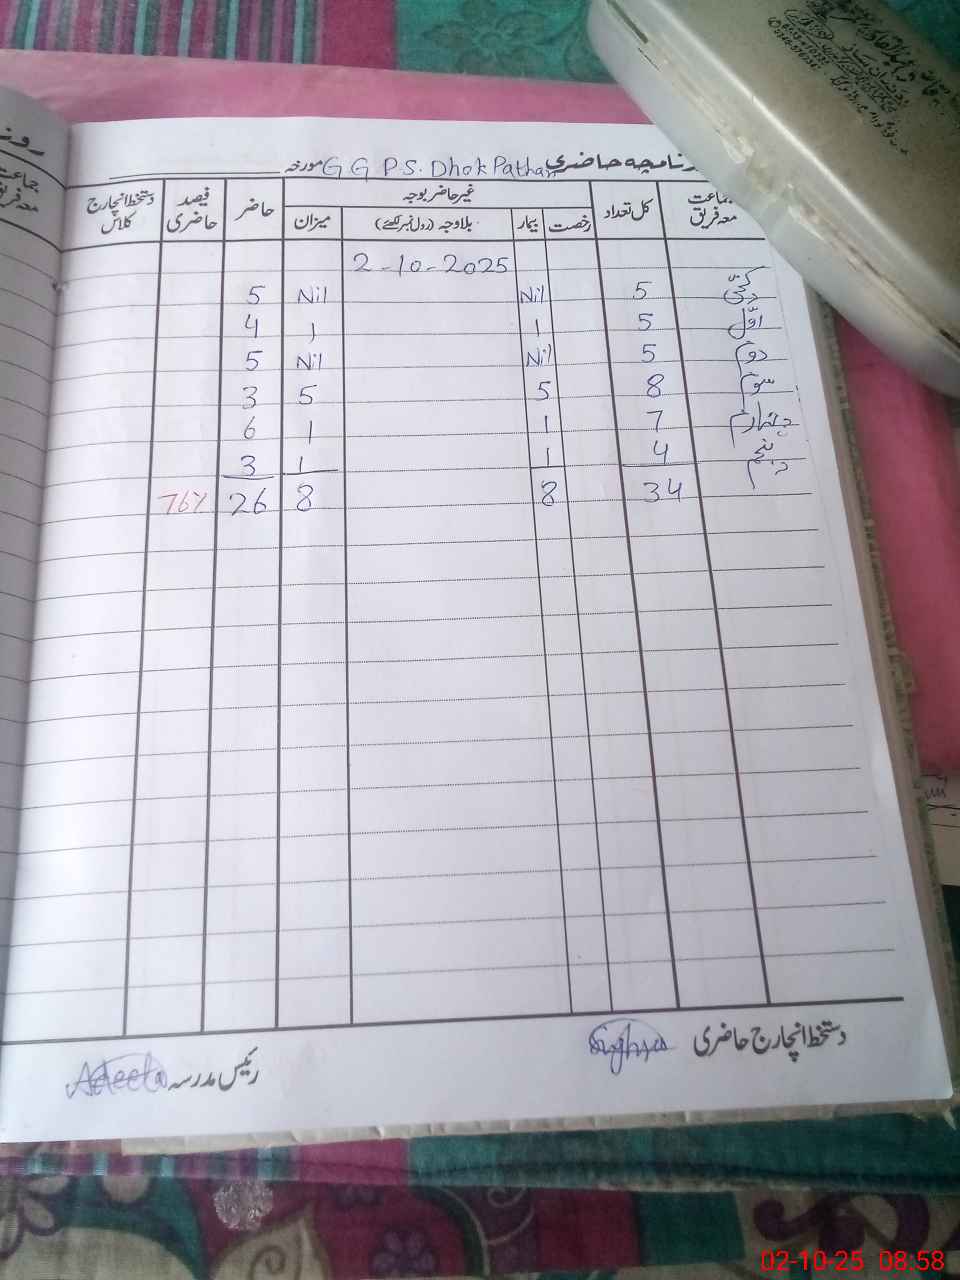 روزنامچہ حاضری G G P.S. Dhok Pathan مورخہ
جماعت معہ فریق کل تعداد غیر حاضر بوجہ حاضر فیصد حاضری دستخط انچارج کلاس
رخصت بیمار بلاوجہ (رول نمبر لکھئے) میزان
2-10-2025
کچی 5 Nil Nil 5
اوّل 5 1 1 4
دوم 5 Nil Nil 5
سوم 8 5 5 3
چہارم 7 1 1 6
پنجم 4 1 1 3
34 8 8 26 76%
دستخط انچارج حاضری Sughra
رئیس مدرسہ Adeela
02-10-25 08:58